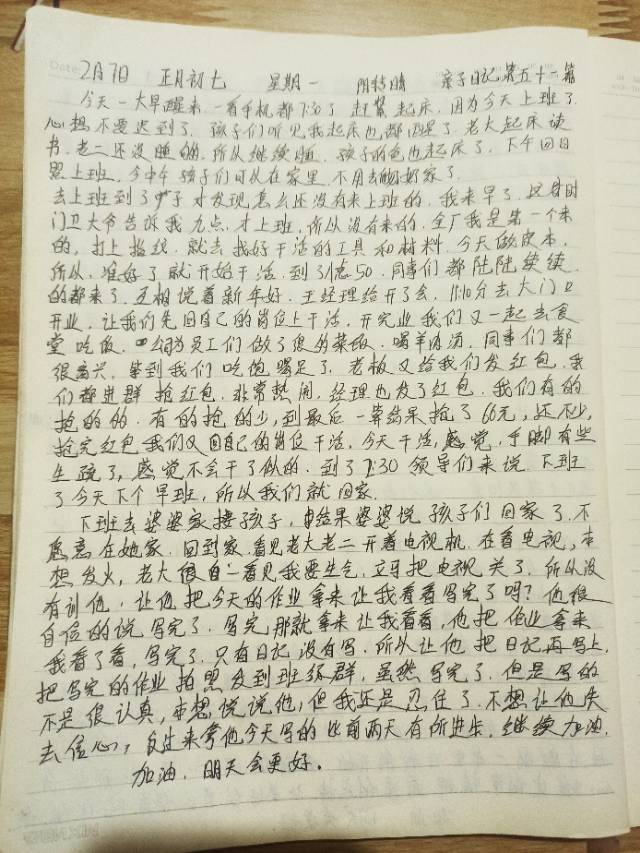 2月7日 正月初七 星期一 阴转晴 亲子日记第五十一篇
今天一大早醒来一看手机都7:00了赶紧起床.因为今天上班了.
心想不要迟到了.孩子们听见我起床也都醒了.老大起床读
书.老二还没睡醒.所以继续睡.孩子的爸也起床了.下午回日
照上班.今中午孩子们可以在家里.不用去婆婆家了.
去上班到了才发现怎么还没有来上班的.我来早了.这时
门卫大爷告诉我九点.才上班,所以没有来的.全厂我是第一个来
的,打上指纹.就去找好干活的工具和材料.今天做皮本,
所以.准备好了就开始干活.到了8:50.同事们都陆陆续续
的都来了.互相说着新年好.王经理给开了会.11:10分去大门口
开业.让我们先回自己的岗位上干活.开完业我们又一起去食
堂吃饭.公司为员工们做了很多菜饭.喝羊肉汤,同事们都
很高兴,等到我们吃饱喝足了.老板又给我们发红包.我
们都进群抢红包.非常热闹.经理也发了红包.我们有的
抢的多.有的抢的少,到最后一算结果抢了66元,还不少,
抢完红包我们又回自己的岗位干活,今天干活,感觉,手脚有些
生疏了,感觉不会干了似的.到了7:30领导们来说.下班
了今天下个早班,所以我们就回家.
下班去婆婆家接孩子,结果婆婆说孩子们回家了.不
愿意在她家.回到家.看见老大老二开着电视机.在看电视,本
想发火,老大很自一看见我要生气.立马把电视关了.所以没
有训他.让他把今天的作业拿来让我看看写完了吗?他很
自信的说写完了.写完那就拿来让我看看,他把作业拿来
我看了看,写完了.只有日记没有写.所以让他把日记再写上,
把写完的作业拍照发到班级群,虽然写完了.但是写的
不是很认真,本想说说他,但我还是忍住了.不想让他失
去信心,反过来夸他今天写的比前两天有所进步.继续加油,
加油.明天会更好.